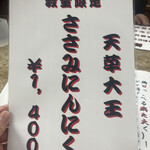 数量限定
天草大王
ささみにんにく
¥1,400